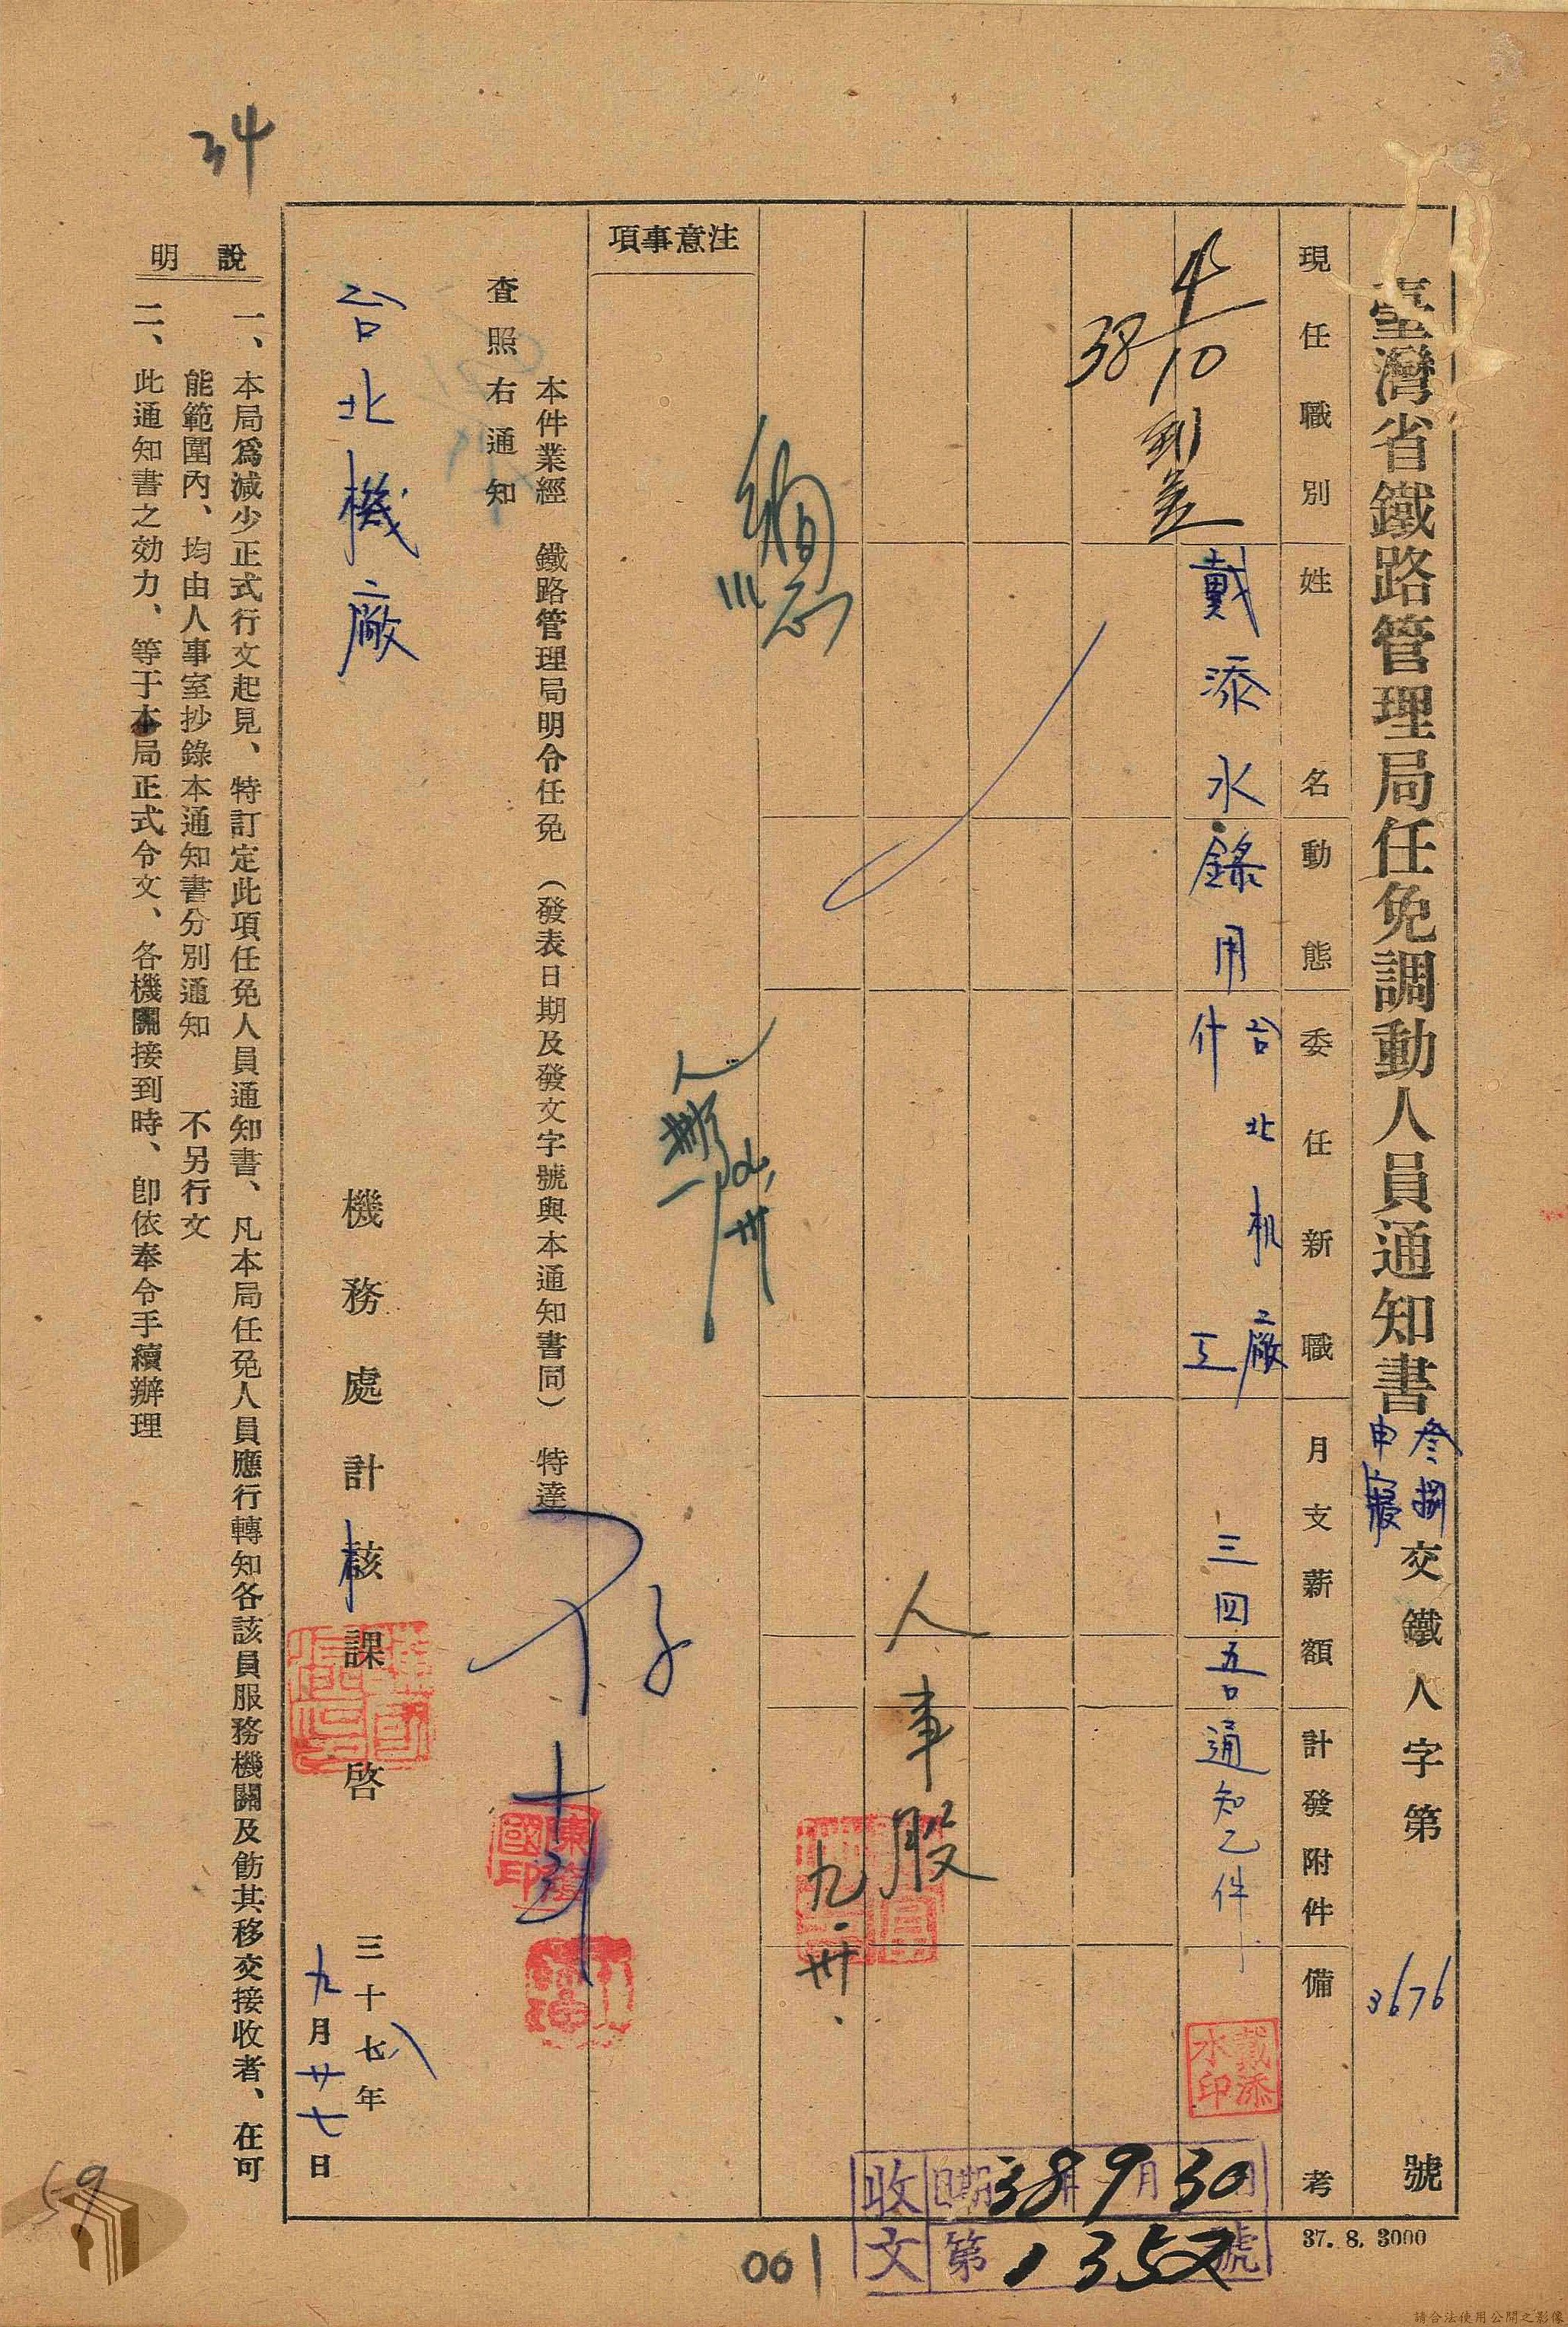 臺灣省鐵路管理局任免調動人員通知書
叁捌
申寢
交鐵人字第3676號
現任職別
姓名
動態
委任新職
月支薪額
計發附件
備考
38 4/10 到差
戴添水
錄用
台北机廠
什工
三四五口
通知乙件
戴添水印
人事股
九.卅、
注意事項
本件業經 鐵路管理局明令任免 (發表日期及發文字號與本通知書同) 特達
查照右通知
台北機廠
機務處計核課啓
三十七八年
九月廿七日
說明
一、本局爲減少正式行文起見、特訂定此項任免人員通知書、凡本局任免人員應行轉知各該員服務機關及飭其移交接收者、在可
能範圍內、均由人事室抄錄本通知書分別通知 不另行文
二、此通知書之効力、等于本局正式令文、各機關接到時、卽依奉令手續辦理
收文
日期 38年9月30日
第1357號
37. 8. 3000
001
34
59
請合法使用公開之影像